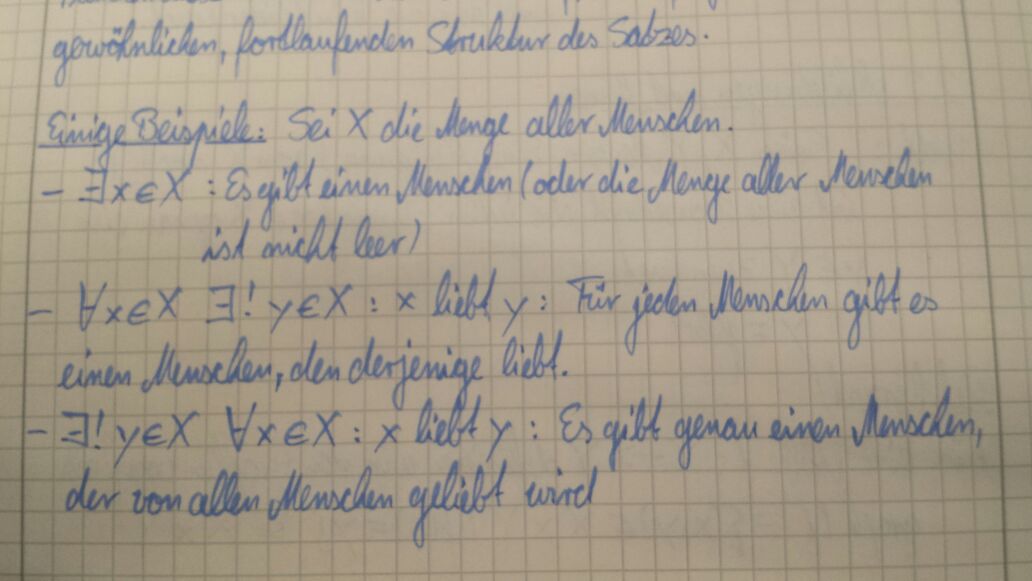 gewöhnlichen, fortlaufenden Struktur des Satzes.
Einige Beispiele: Sei X die Menge aller Menschen.
- ∃x∈X : Es gibt einen Menschen (oder die Menge aller Menschen
ist nicht leer)
- ∀x∈X ∃! y∈X : x liebt y : Für jeden Menschen gibt es
einen Menschen, den derjenige liebt.
- ∃! y∈X ∀x∈X : x liebt y : Es gibt genau einen Menschen,
der von allen Menschen geliebt wird